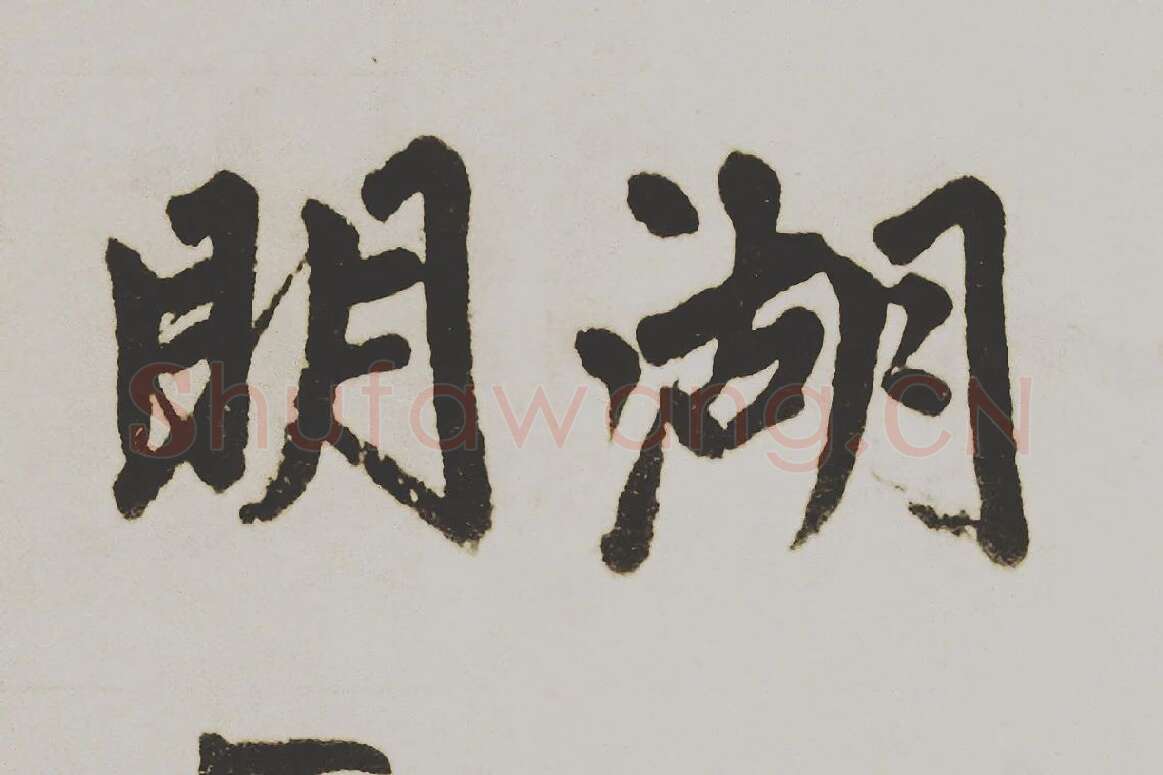 明湖
Shufawang.CN